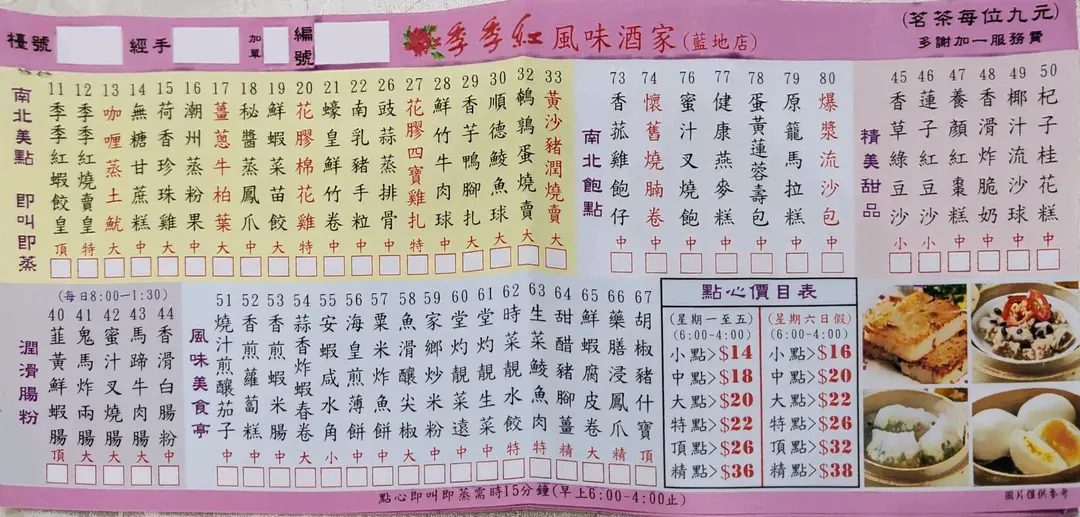 檯號
經手
加單
編號
紅季季紅風味酒家(藍地店)
(茗茶每位九元)
多謝加一服務費
南北美點 即叫即蒸
11 季季紅蝦餃皇 頂
12 季季紅燒賣皇 特
13 咖喱蒸土魷 大
14 無糖甘蔗糕 中
15 荷香珍珠雞 中
16 潮州蒸粉果 中
17 薑蔥牛柏葉 大
18 秘醬蒸鳳爪 中
19 鮮蝦菜苗餃 大
20 花膠棉花雞 特
21 蠔皇鮮竹卷 大
22 南乳豬手粒 中
26 豉蒜蒸排骨 中
27 花膠四寶雞扎 特
28 鮮竹牛肉球 中
29 香芋鴨腳扎 大
30 順德鯪魚球 大
32 鵪鶉蛋燒賣 大
33 黃沙豬潤燒賣 大
南北飽點
73 香菰雞飽仔 中
74 懷舊燒腩卷 中
76 蜜汁叉燒飽 中
77 健康燕麥糕 中
78 蛋黃蓮蓉壽包 中
79 原籠馬拉糕 中
80 爆漿流沙包 中
精美甜品
45 香草綠豆沙 小
46 蓮子紅豆沙 小
47 養顏紅棗糕 中
48 香滑炸脆奶 中
49 椰汁流沙球 中
50 杞子桂花糕 中
潤滑腸粉
(每日8:00—1:30)
40 韮黃鮮蝦腸 頂
41 鬼馬炸兩腸 大
42 蜜汁叉燒腸 大
43 馬蹄牛肉腸 大
44 香滑白腸粉 中
風味美食亭
51 燒汁煎釀茄子 中
52 香煎蘿蔔糕 中
53 香煎蝦米腸 中
54 蒜香炸蝦春卷 大
55 安蝦咸水角 小
56 海皇煎薄餅 中
57 粟米炸魚餅 中
58 魚滑釀尖椒 大
59 家鄉炒米粉 中
60 堂灼靚菜遠 中
61 堂灼靚生菜 中
62 時菜水餃 特
63 生菜鯪魚肉 特
64 甜醋豬腳薑 精
65 鮮蝦腐皮卷 大
66 藥膳浸鳳爪 精
67 胡椒豬什寶 頂
點心價目表
(星期一至五)
(6:00-4:00)
小點>$14
中點>$18
大點>$20
特點>$22
頂點>$26
精點>$36
(星期六日假)
(6:00-4:00)
小點>$16
中點>$20
大點>$22
特點>$26
頂點>$32
精點>$38
點心即叫即蒸需時15分鐘(早上6:00-4:00止)
圖片僅供參考